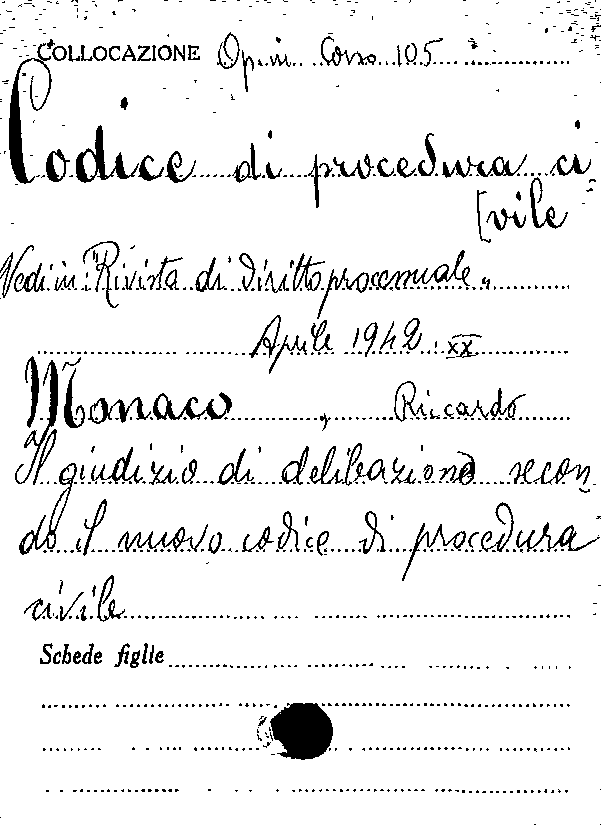 COLLOCAZIONE Op. in. Corso 105
Codice di procedura ci-
[vile
Vedi in: "Rivista di diritto processuale"
Aprile 1942. XX
Monaco, Riccardo
Il giudizio di delibazione secon-
do il nuovo codice di procedura
civile
Schede figlie